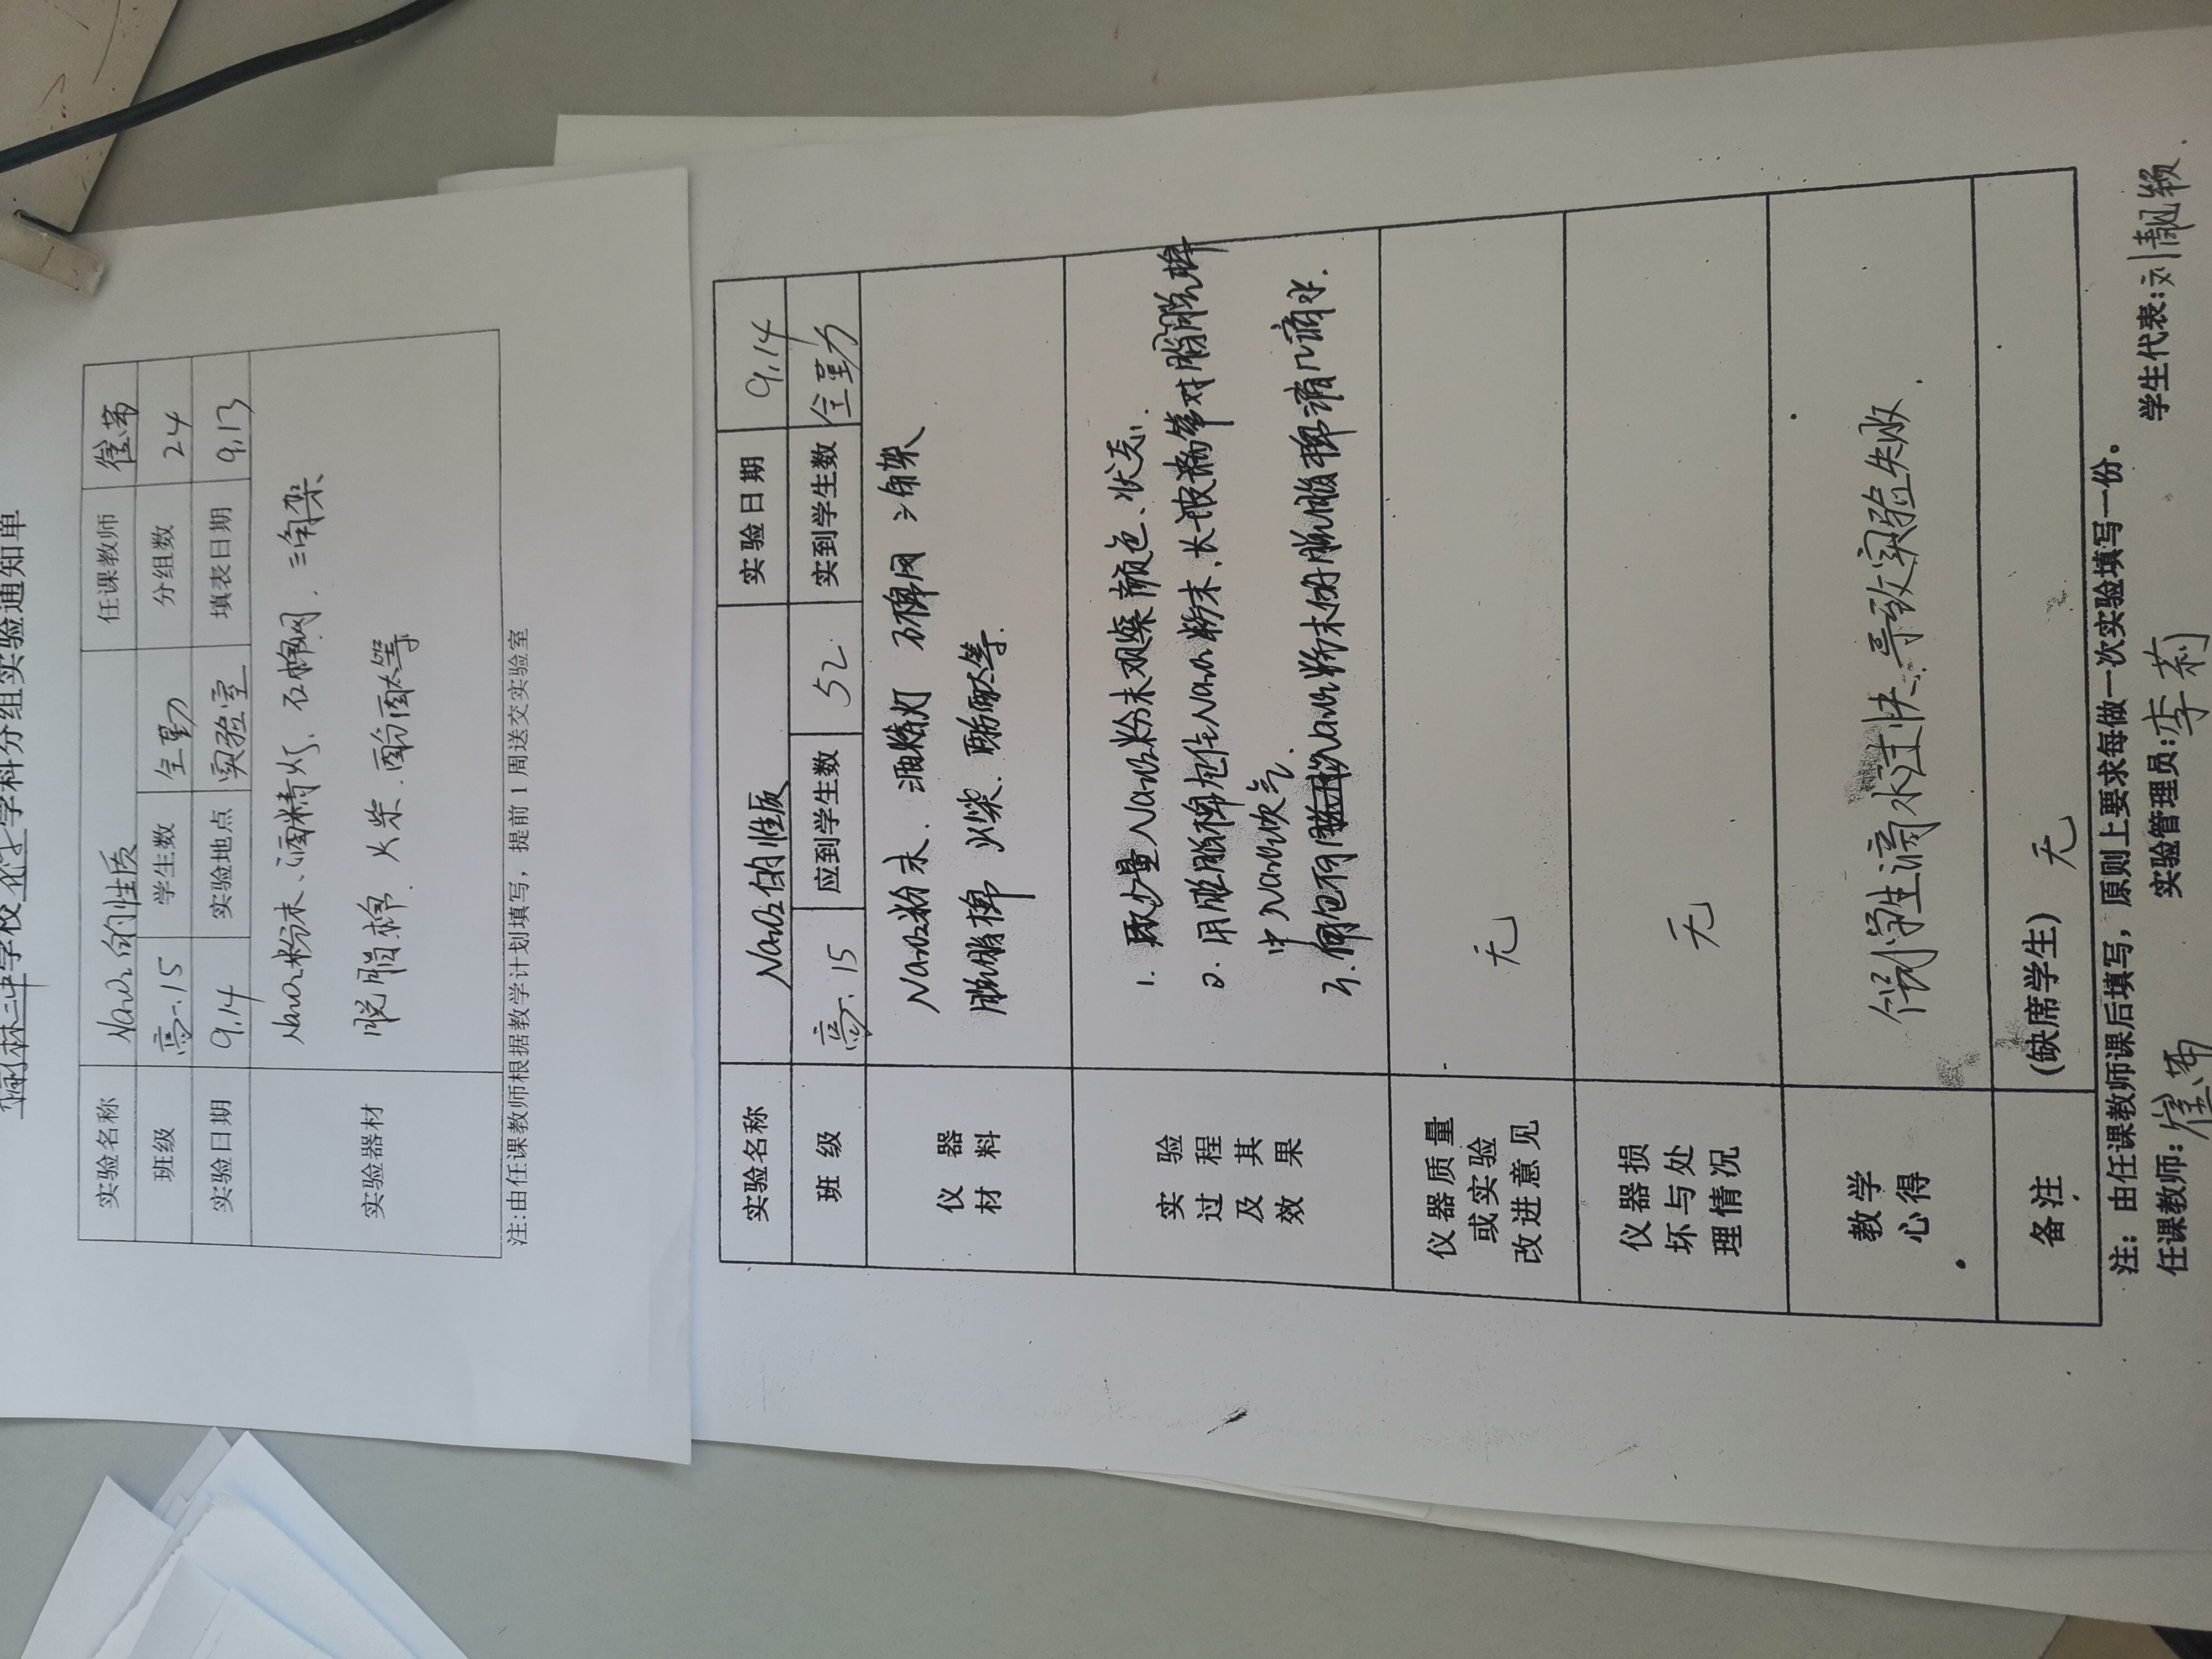 林三中学校化学学科分组实验通知单
实验名称 Na₂O₂的性质 任课教师 崔芾
班级 高一.15 学生数 全勤 分组数 24
实验日期 9.14 实验地点 实验室 填表日期 9.13
实验器材 Na₂O₂粉末、酒精灯、石棉网、三角架
脱脂棉、火柴、酚酞等
注:由任课教师根据教学计划填写，提前1周送交实验室
实验名称 Na₂O₂的性质 实验日期 9.14
班级 高一.15 应到学生数 52 实到学生数 全勤
仪器材料 Na₂O₂粉末、酒精灯 石棉网 三角架
脱脂棉 火柴、酚酞等.
实验过程及其效果 1. 取少量Na₂O₂粉末观察颜色、状态.
2. 用脱脂棉包住Na₂O₂粉末、长玻璃管对脂脱棉
中Na₂O₂吹气.
3. 向包有Na₂O₂粉末的脱脂棉滴几滴水.
仪器质量或实验改进意见 无
仪器损坏与处理情况 无
教学心得 个别学生滴水过快.导致实验失败.
备注 (缺席学生) 无
注：由任课教师课后填写，原则上要求每做一次实验填写一份。
任课教师: 崔芾 实验管理员: 李莉 学生代表: 刘靓颖.